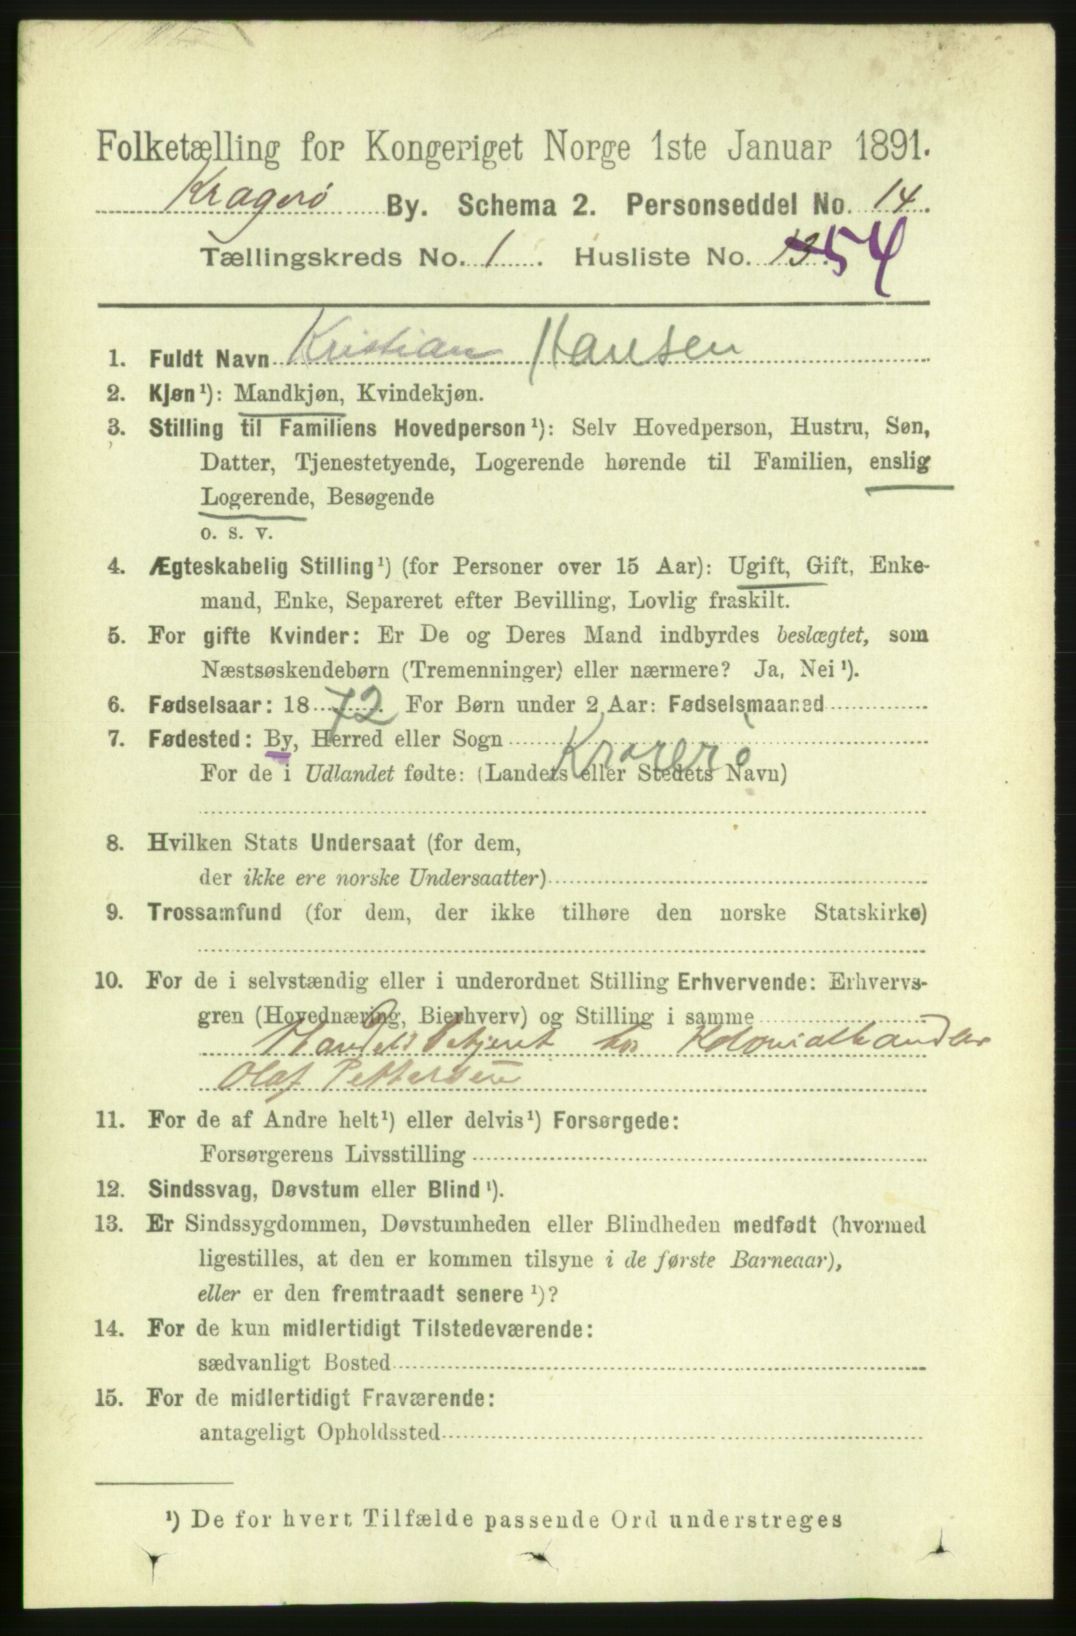 Folketælling for Kongeriget Norge 1ste Januar 1891.
Kragerö By. Schema 2. Personseddel No. 14.
Tællingskreds No. 1. Husliste No. 13 54
1. Fuldt Navn Kristian Hansen
2. Kjøn¹): Mandkjøn, Kvindekjøn.
3. Stilling til Familiens Hovedperson¹): Selv Hovedperson, Hustru, Søn,
Datter, Tjenestetyende, Logerende hørende til Familien, enslig
Logerende, Besøgende
o. s. v.
4. Ægteskabelig Stilling¹) (for Personer over 15 Aar): Ugift, Gift, Enke-
mand, Enke, Separeret efter Bevilling, Lovlig fraskilt.
5. For gifte Kvinder: Er De og Deres Mand indbyrdes beslægtet, som
Næstsøskendebørn (Tremenninger) eller nærmere? Ja, Nei¹).
6. Fødselsaar: 1872. For Børn under 2 Aar: Fødselsmaaned
7. Fødested: By, Herred eller Sogn Krarerö
For de i Udlandet fødte: (Landets eller Stedets Navn)
8. Hvilken Stats Undersaat (for dem,
der ikke ere norske Undersaatter)
9. Trossamfund (for dem, der ikke tilhøre den norske Statskirke)
10. For de i selvstændig eller i underordnet Stilling Erhvervende: Erhvervs-
gren (Hovednæring, Bierhverv) og Stilling i samme
Handelsbetjent hos Kolonialhandler
Olaf Pettersen
11. For de af Andre helt¹) eller delvis¹) Forsørgede:
Forsørgerens Livsstilling
12. Sindssvag, Døvstum eller Blind¹).
13. Er Sindssygdommen, Døvstumheden eller Blindheden medfødt (hvormed
ligestilles, at den er kommen tilsyne i de første Barneaar),
eller er den fremtraadt senere¹)?
14. For de kun midlertidigt Tilstedeværende:
sædvanligt Bosted
15. For de midlertidigt Fraværende:
antageligt Opholdssted
¹) De for hvert Tilfælde passende Ord understreges